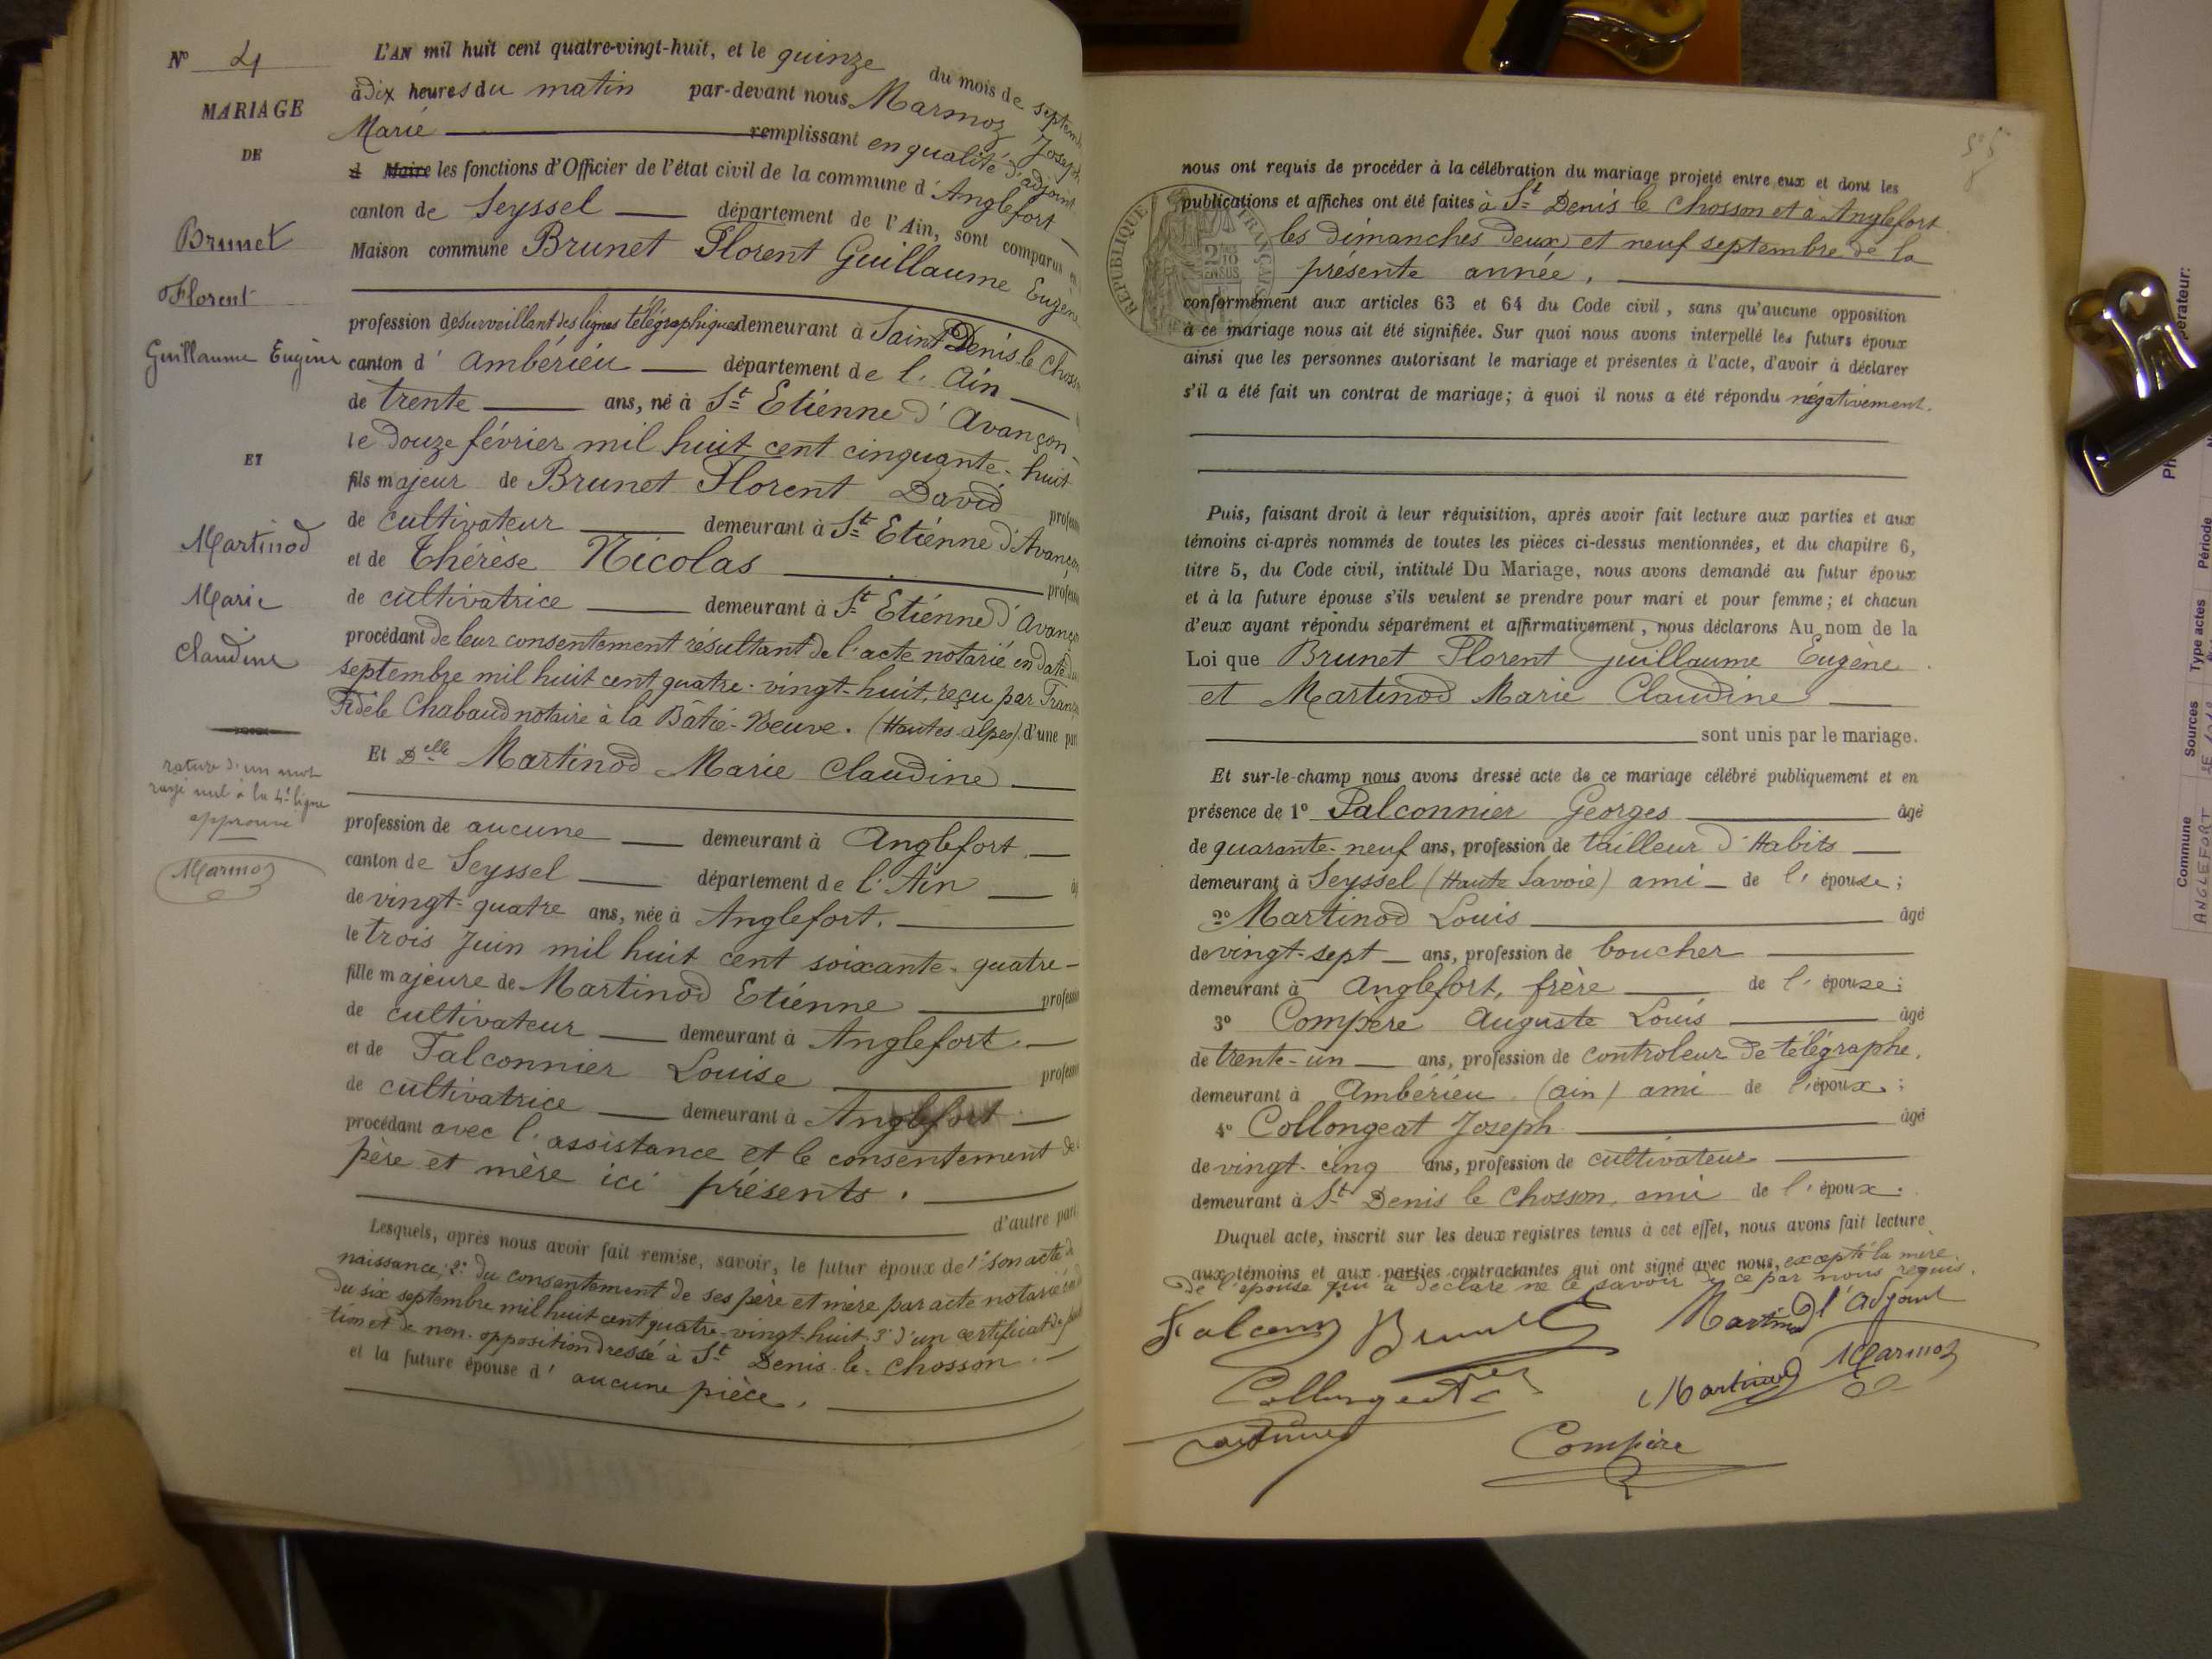 N° 4
MARIAGE
DE
Brunet
Florent
Guillaume Eugène
ET
Martinod
Marie
Claudine
rature d'un mot
rayé nul à la 4e ligne
approuvé
Marmoz
L'AN mil huit cent quatre-vingt-huit, et le quinze du mois de septem
à dix heures du matin par-devant nous Marmoz Joseph
Marie remplissant en qualité d'adjoint
d Maire les fonctions d'Officier de l'état civil de la commune d'Anglefort
canton de Seyssel département de l'Ain, sont comparus en
Maison commune Brunet Florent Guillaume Eugène
profession de surveillant des lignes télégraphiques demeurant à Saint Denis-le Chosson
canton d'Ambérieu département de l'Ain
de trente ans, né à St Etienne d'Avançon
le douze février mil huit cent cinquante-huit
fils majeur de Brunet Florent David profess
de cultivateur demeurant à St Etienne d'Avançon
et de Thérèse Nicolas profess
de cultivatrice demeurant à St Etienne d'Avançon
procédant de leur consentement résultant de l'acte notarié en date du
septembre mil huit cent quatre-vingt-huit, reçu par Franç
Fidèle Chabaud notaire à la Bâtie-Neuve. (Hautes-alpes) d'une part
Et Delle Martinod Marie Claudine
profession de aucune demeurant à Anglefort
canton de Seyssel département de l'Ain
de vingt-quatre ans, née à Anglefort.
le trois Juin mil huit cent soixante-quatre
fille majeure de Martinod Etienne profess
de cultivateur demeurant à Anglefort
et de Falconnier Louise profess
de cultivatrice demeurant à Anglefort
procédant avec l'assistance et le consentement de
père et mère ici présents.
d'autre part
Lesquels, après nous avoir fait remise, savoir, le futur époux de 1° son acte de
naissance; 2° du consentement de ses père et mère par acte notarié
du six septembre mil huit cent quatre-vingt-huit. 3° d'un certificat de
tion et de non-opposition dressé à St Denis-le-Chosson.
et la future épouse d'aucune pièce.
nous ont requis de procéder à la célébration du mariage projeté entre eux et dont les
publications et affiches ont été faites à St Denis le Chosson et à Anglefort
les dimanches deux et neuf septembre de la
présente année.
RÉPUBLIQUE FRANÇAISE
conformément aux articles 63 et 64 du Code civil, sans qu'aucune opposition
à ce mariage nous ait été signifiée. Sur quoi nous avons interpellé les futurs époux
ainsi que les personnes autorisant le mariage et présentes à l'acte, d'avoir à déclarer
s'il a été fait un contrat de mariage; à quoi il nous a été répondu négativement.
Puis, faisant droit à leur réquisition, après avoir fait lecture aux parties et aux
témoins ci-après nommés de toutes les pièces ci-dessus mentionnées, et du chapitre 6,
titre 5, du Code civil, intitulé Du Mariage, nous avons demandé au futur époux
et à la future épouse s'ils veulent se prendre pour mari et pour femme; et chacun
d'eux ayant répondu séparément et affirmativement, nous déclarons Au nom de la
Loi que Brunet Florent Guillaume Eugène
et Martinod Marie Claudine
sont unis par le mariage.
Et sur-le-champ nous avons dressé acte de ce mariage célébré publiquement et en
présence de 1° Falconnier Georges âgé
de quarante-neuf ans, profession de tailleur d'Habits
demeurant à Seyssel (Haute Savoie) ami de l'épouse;
2° Martinod Louis âgé
de vingt-sept ans, profession de boucher
demeurant à Anglefort, frère de l'épouse:
3° Compère Auguste Louis âgé
de trente-un ans, profession de controleur de télégraphe.
demeurant à Ambérieu (ain) ami de l'époux:
4° Collongeat Joseph âgé
de vingt-cinq ans, profession de cultivateur
demeurant à St Denis le Chosson, ami de l'époux.
Duquel acte, inscrit sur les deux registres tenus à cet effet, nous avons fait lecture
aux témoins et aux parties contractantes qui ont signé avec nous, excepté la mère
de l'épouse qui a déclaré ne le savoir de ce par nous requis.
Brunet Martinod l'Adjoint
Collongeat Martinod Marmoz
Compère
Commune Sources Type actes Période
ANGLEFORT